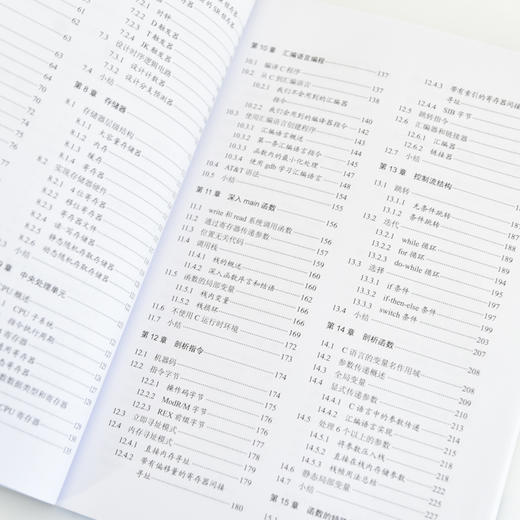 7.2.3 时钟
7.2.4 D触发器
T触发器
JK触发器
7.3 设计时序逻辑电路
7.3.1 设计计数器
7.3.2 设计分支预测器
7.4 小结
第8章 存储器
8.1 存储器层级结构
8.1.1 大容量存储器
8.1.2 内存
8.1.3 缓存
8.1.4 寄存器
8.2 实现存储器硬件
8.2.1 4位寄存器
8.2.2 移位寄存器
8.2.3 寄存器文件
8.2.4 读-写存储器
8.2.5 静态随机存取存储器
8.2.6 动态随机存取存储器
小结
章 中央处理单元
CPU概述
CPU子系统
指令执行周期
寄存器
通用寄存器
状态寄存器
数数据类型和寄存器
CPU寄存器
第10章 汇编语言编程 137
10.1 编译C程序 137
10.2 从C到汇编语言 138
10.2.1 我们不会用到的汇编器
指令 140
10.2.2 我们会用到的编译器指令 142
10.3 使用汇编语言创建程序 144
10.3.1 汇编语言概述 144
10.3.2 第一条汇编语言指令 145
10.3.3 函数内的最小化处理 147
10.3.4 使用gdb学习汇编语言 148
10.4 AT&T语法 154
10.5 小结 155
第11章 深入main函数 156
11.1 write和read系统调用函数 156
11.2 通过寄存器传递参数 156
11.3 位置无关代码 159
11.4 调用栈 160
11.4.1 栈的概述 160
11.4.2 深入函数序言和结语 163
11.5 函数的局部变量 166
11.5.1 栈内变量 166
11.5.2 栈损坏 169
11.6 不使用C运行时环境 172
11.7 小结 173
第12章 剖析指令 174
12.1 机器码 174
12.2 指令字节 174
12.2.1 操作码字节 175
12.2.2 ModR/M字节 176
12.2.3 REX前缀字节 177
12.3 立即寻址模式 178
12.4 内存寻址模式 179
12.4.1 直接内存寻址 179
12.4.2 带有偏移量的寄存器间接
寻址 180
12.4.3 带有索引的寄存器间接
寻址
12.4.4 SIB字节
12.5 跳转指令
12.6 汇编器和链接器
12.6.1 汇编器
12.6.2 链接器
12.7 小结
第13章 控制流结构
13.1 跳转
13.1.1 无条件跳转
13.1.2 条件跳转
13.2 迭代
13.2.1 while循环
13.2.2 for循环
13.2.3 do-while循环
13.3 选择
13.3.1 if条件
13.3.2 if-then-else条件
13.3.3 switch条件
13.4 小结
第14章 剖析函数 208
14.1 C语言的变量名作用域 208
14.2 参数传递概述 209
14.3 全局变量 210
14.4 显式传递参数 213
14.4.1 C语言中的参数传递 214
14.4.2 汇编语言实现 215
14.5 处理6个以上的参数 218
14.5.1 将参数压入栈 218
14.5.2 直接在栈内存储参数 221
14.5.3 栈帧用法总结 222
14.6 静态局部变量 225
14.7 小结
第15章 函数的特